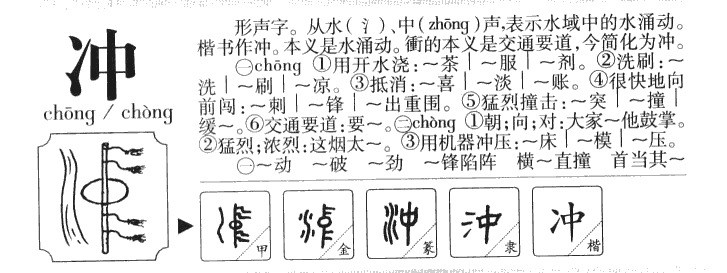 冲
chōng / chòng
形声字。从水(氵)、中(zhōng)声,表示水域中的水涌动。
楷书作冲。本义是水涌动。衝的本义是交通要道,今简化为冲。
㊀chōng ①用开水浇:~茶|~服|~剂。②洗刷:~
洗|~刷|~凉。③抵消:~喜|~淡|~账。④很快地向
前闯:~刺|~锋|~出重围。⑤猛烈撞击:~突|~撞|
缓~。⑥交通要道:要~。㊁chòng ①朝;向;对:大家~他鼓掌。
②猛烈;浓烈:这烟太~。③用机器冲压:~床|~模|~压。
㊀~动 ~破 ~劲 ~锋陷阵 横~直撞 首当其~
甲 金 篆 隶 冲 楷